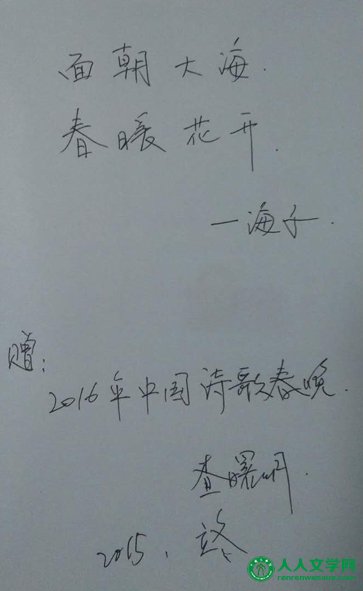 面朝大海.
春暖花开.
—海子.
赠:
2016年中国诗歌春晚.
查曙明.
2015.
人人文学网
renrenwenxue.com